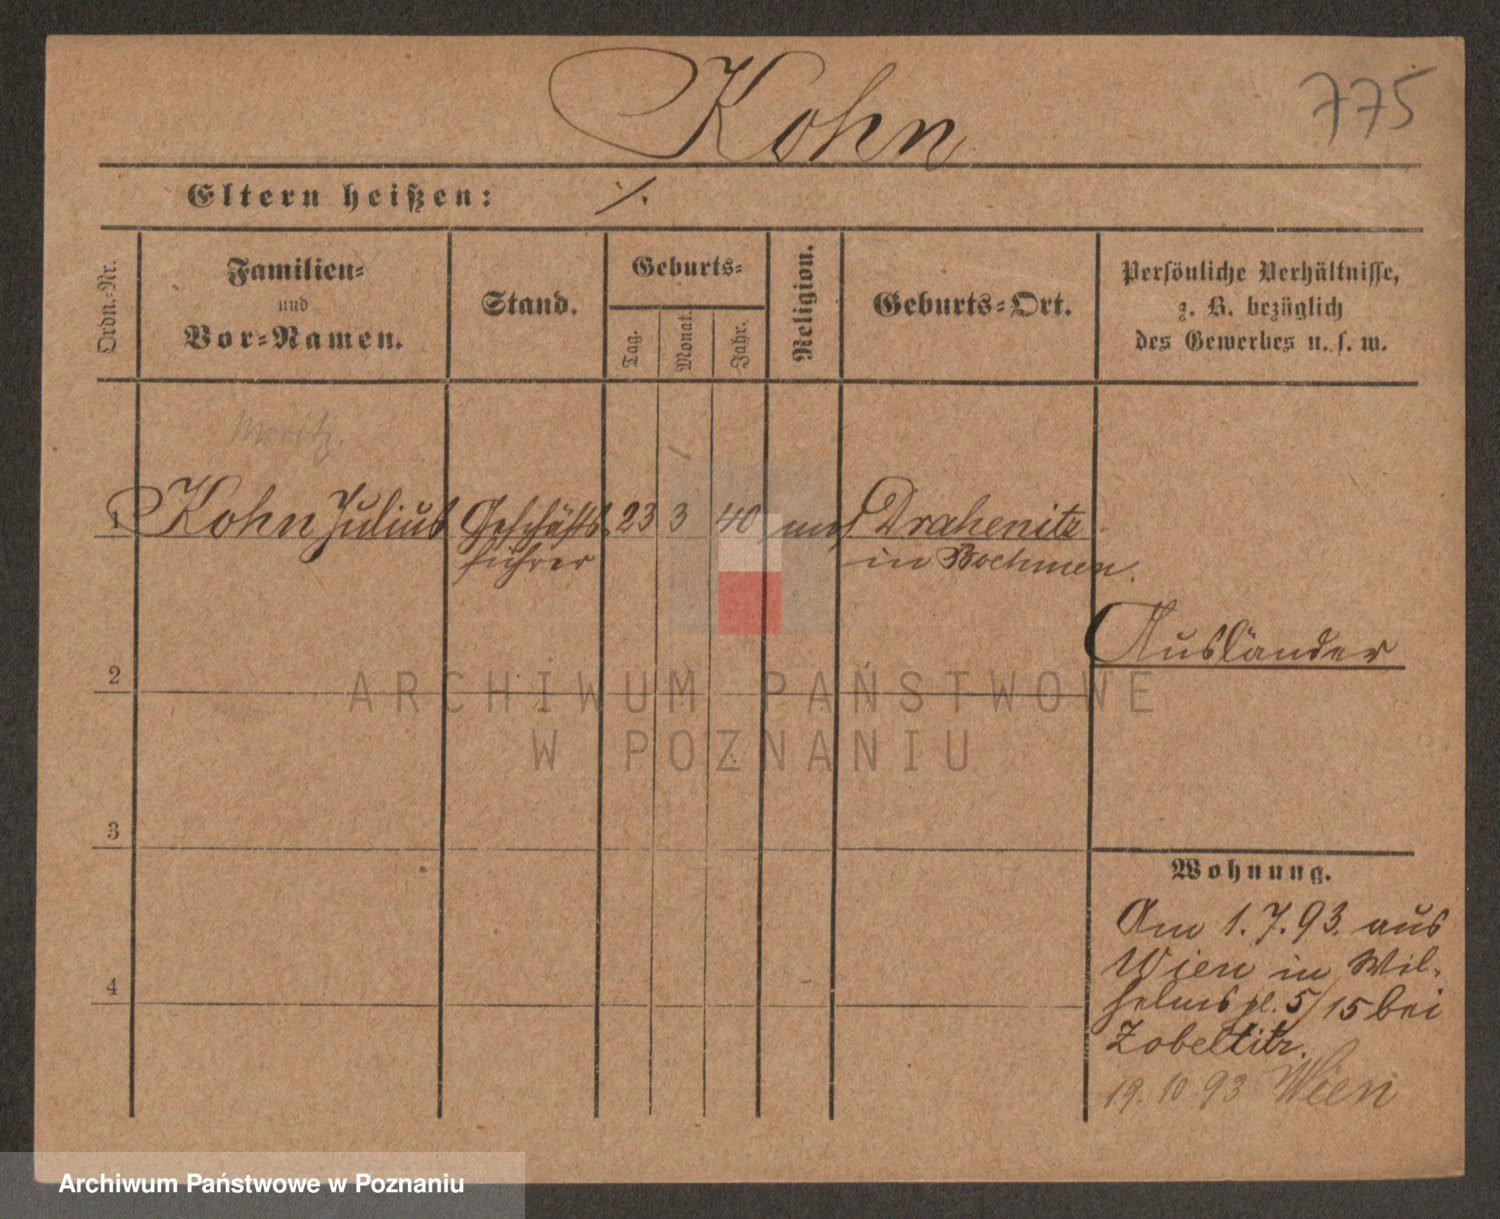 Kohn
775
Eltern heißen: ·/.
Ordn.-Nr.
Familien-
und
Vor-Namen.
Stand.
Geburts-
Tag.
Monat.
Jahr.
Religion.
Geburts-Ort.
Persönliche Verhältnisse,
z. B. bezüglich
des Gewerbes u. s. w.
Moritz.
1 Kohn Julius Geschäfts 23 3 40 mos Drahenitz
führer in Boehmen.
Ausländer
2
ARCHIWUM PAŃSTWOWE
W POZNANIU
3
Wohnung.
Am 1.7.93. aus
Wien in Wil-
helmspl. 5/15 bei
Zobeltitz.
19.10.93 Wien
4
Archiwum Państwowe w Poznaniu